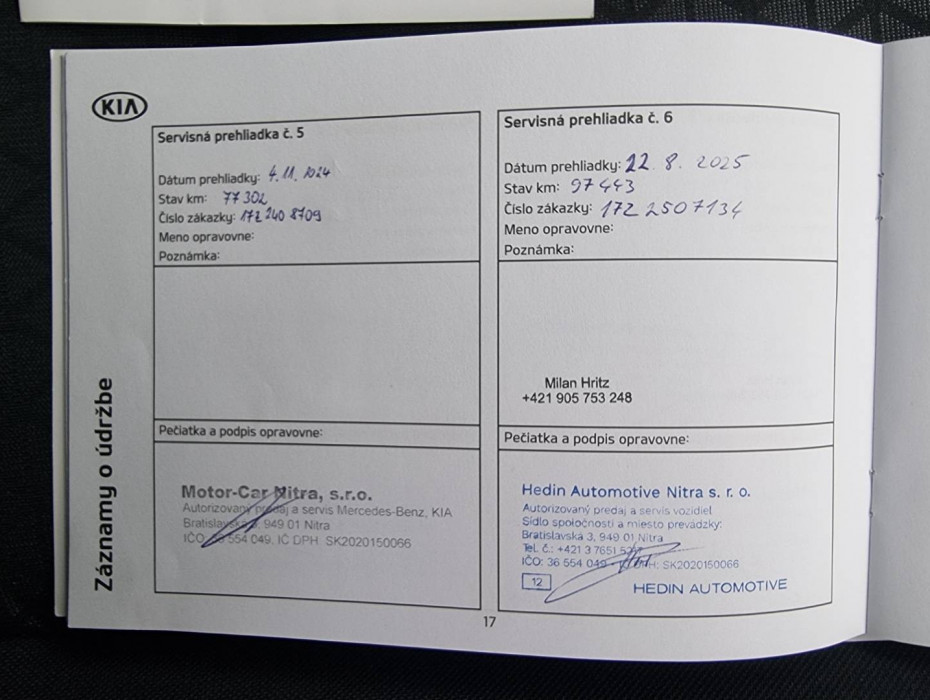 KIA
Záznamy o údržbe
Servisná prehliadka č. 5
Dátum prehliadky: 4.11.2024
Stav km: 77 302
Číslo zákazky: 172 240 8709
Meno opravovne:
Poznámka:
Pečiatka a podpis opravovne:
Motor-Car Nitra, s.r.o.
Autorizovaný predaj a servis Mercedes-Benz, KIA
Bratislavská 3, 949 01 Nitra
IČO: 36 554 049, IČ DPH SK2020150066
Servisná prehliadka č. 6
Dátum prehliadky: 22. 8. 2025
Stav km: 97 443
Číslo zákazky: 172 2507134
Meno opravovne:
Poznámka:
Milan Hritz
+421 905 753 248
Pečiatka a podpis opravovne:
Hedin Automotive Nitra s. r. o.
Autorizovaný predaj a servis vozidiel
Sídlo spoločnosti a miesto prevádzky:
Bratislavská 3, 949 01 Nitra
Tel. č.: +421 3 7651
IČO: 36 554 049 DPH: SK2020150066
12
HEDIN AUTOMOTIVE
17